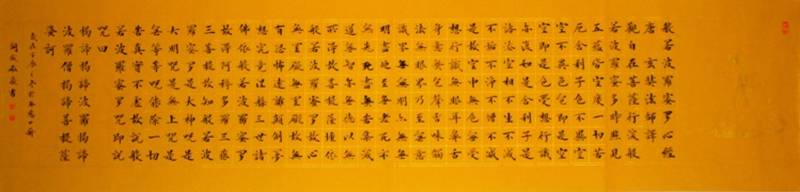 般若波羅蜜多心經
唐 玄奘法師譯
觀自在菩薩行深般
若波羅蜜多時照見
五蘊皆空度一切苦
厄舍利子色不異空
空不異色色即是空
空即是色受想行識
亦復如是舍利子是
諸法空相不生不滅
不垢不淨不增不減
是故空中無色無受
想行識無眼耳鼻舌
身意無色聲香味觸
法無眼界乃至無意
識界無無明亦無無
明盡乃至無老死亦
無老死盡無苦集滅
道無智亦無得以無
所得故菩提薩埵依
般若波羅蜜多故心
無罣礙無罣礙故無
有恐怖遠離顛倒夢
想究竟涅槃三世諸
佛依般若波羅蜜多
故得阿耨多羅三藐
三菩提故知般若波
羅蜜多是大神咒是
大明咒是無上咒是
無等等咒能除一切
苦真實不虛故說般
若波羅蜜多咒即說
咒曰
揭諦揭諦波羅揭諦
波羅僧揭諦菩提薩
婆訶